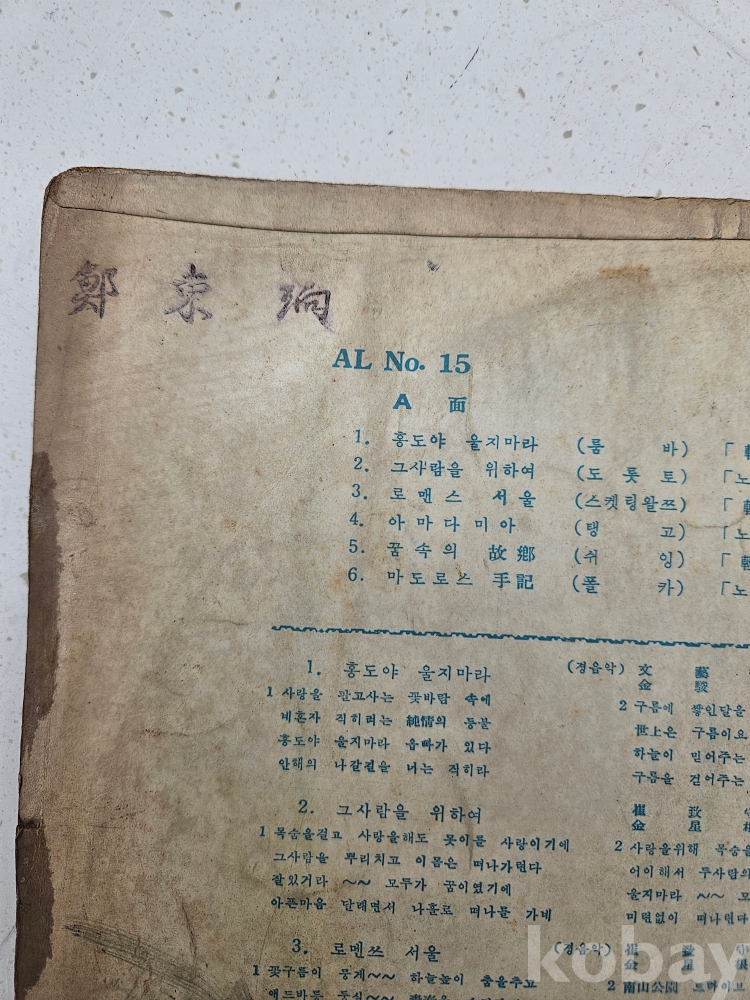 鄭東珦
AL No. 15
A 面
1. 홍도야 울지마라 (룸바) 「
2. 그사람을 위하여 (도롯토) 「노
3. 로맨스 서울 (스켓팅왈쯔) 「
4. 아마다미아 (탱고) 「노
5. 꿈속의 故鄕 (쉬잉) 「
6. 마도로스 手記 (폴카) 「노
1. 홍도야 울지마라 (경음악) 文 藝
金 駿
1 사랑을 팔고사는 꽃바람 속에
네혼자 직히려는 純情의 등불
홍도야 울지마라 옵빠가 있다
안해의 나갈길을 너는 직히라
2 구름에 쌓인달을
世上은 구름이요
하늘이 믿어주는
구름을 걷어주는
2. 그사람을 위하여 崔 致
金 星
1 목숨을걸고 사랑을해도 못이룰 사랑이기에
그사람을 뿌리치고 이몸은 떠나가련다
잘있거라 ~~ 모두가 꿈이였기에
아픈마음 달래면서 나홀로 떠나를 가네
2 사랑을위해 목숨을
어이해서 두사람의
울지마라 ~~ 모
미련없이 떠나련다
3. 로멘쓰 서울 (경음악) 崔 致
金 星
1 꽃구름이 뭉게~~ 하늘높이 춤을추고
2 南山公園 드라이브
kobay